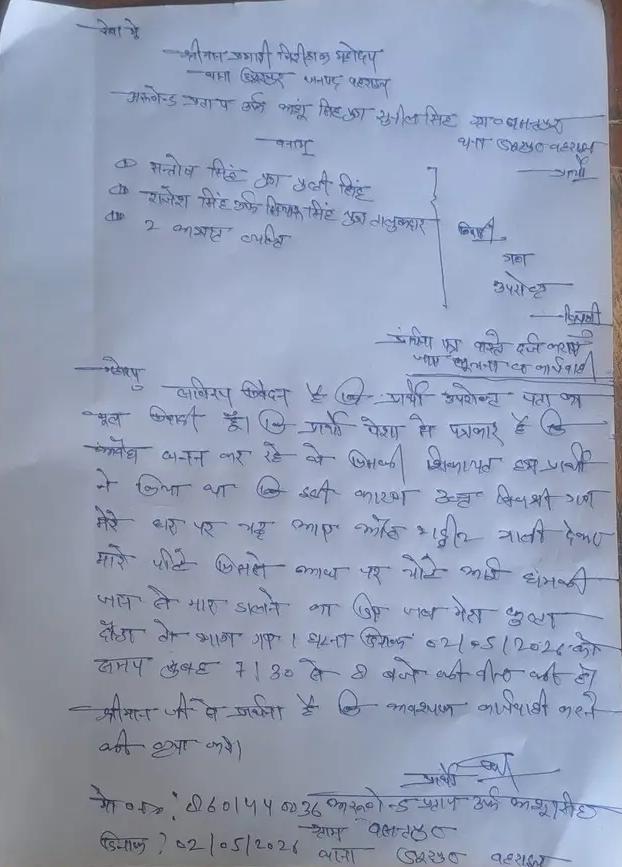 सेवा में
श्रीमान प्रभारी निरीक्षक महोदय
थाना जनपद बहराइच
प्रताप उर्फ सिंह पुत्र सुनील सिंह
थाना बहराइच
प्रार्थी
बनाम
① सन्तोष सिंह पुत्र सिंह
② राजेश सिंह उर्फ सिंह पुत्र तालुकदार
③ 2 अज्ञात व्यक्ति
गण
उपरोक्त
विपक्षी
प्रार्थना पत्र वास्ते दर्ज कराने
व कार्यवाही
महोदय
सविनय निवेदन है कि प्रार्थी उपरोक्त पता का
मूल निवासी है। कि प्रार्थी पेशा से पत्रकार है कि
अवैध खनन कर रहे थे जिसकी शिकायत हम प्रार्थी
ने किया था कि इसी कारण उक्त विपक्षी गण
मेरे घर पर चढ़ आए और गाली देकर
मारे पीटे जिससे पर चोटें आयी धमकी
जान से मार डालने का जब मेरा
दौड़ा तो भाग गए। घटना दिनांक 02/05/2026 को
समय सुबह 7/30 से 8 बजे की बीच की है।
श्रीमान जी से प्रार्थना है कि आवश्यक कार्यवाही करने
की कृपा करें।
प्रार्थी
मो०न०: प्रताप उर्फ सिंह
दिनांक: 02/05/2026 ग्राम
थाना बहराइच